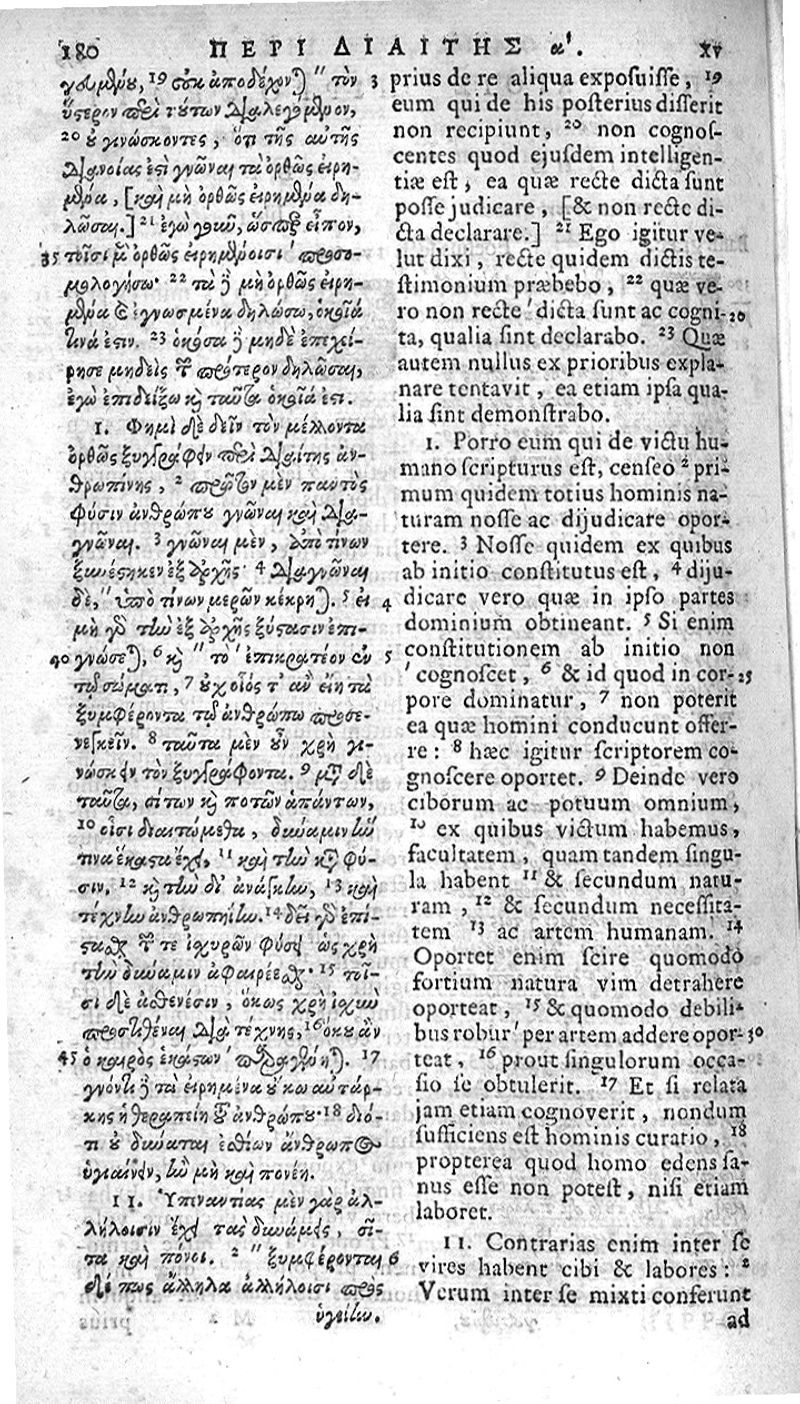 180 ΠΕΡΙ ΔΙΑΙΤΗΣ α'. xv
γουμένου, 19 οὐκ ἀποδέχονται " τὸν 3
ὕστερον περὶ τούτων διαλεγόμενον,
20 οὐ γινώσκοντες, ὅτι τῆς αὐτῆς
διανοίας ἐστὶ γνῶναι τὰ ὀρθῶς εἰρη-
μένα, [καὶ μὴ ὀρθῶς εἰρημένα δη-
λῶσαι.] 21 ἐγὼ οὖν, ὥσπερ εἶπον,
35 τοῖσι μὲν ὀρθῶς εἰρημένοισι ' προσο-
μολογήσω· 22 τὰ δὲ μὴ ὀρθῶς εἰρη-
μένα ἐγνωσμένα δηλώσω, ὁκοῖά
τινά ἐστιν. 23 ὁκόσα δὲ μηδὲ ἐπεχεί-
ρησε μηδεὶς τῶν πρότερον δηλῶσαι,
ἐγὼ ἐπιδείξω καὶ ταῦτα ὁκοῖά ἐστι.
1. Φημὶ δὲ δεῖν τὸν μέλλοντα
ὀρθῶς ξυγγράφειν περὶ διαίτης ἀν-
θρωπίνης, 2 πρῶτον μὲν παντὸς
φύσιν ἀνθρώπου γνῶναι καὶ δια-
γνῶναι. 3 γνῶναι μὲν, ἀπὸ τίνων
ξυνέστηκεν ἐξ ἀρχῆς· 4 διαγνῶναι
δὲ, " ὑπὸ τίνων μερῶν κέκρηται. 5 εἰ 4
μὴ γὰρ τὴν ἐξ ἀρχῆς ξύστασιν ἐπι-
40 γνώσεται, 6 καὶ " τὸ ' ἐπικρατέον ἐν 5
τῷ σώματι, 7 οὐχ οἷός τ' ἂν εἴη τὰ
ξυμφέροντα τῷ ἀνθρώπῳ προσε-
νεγκεῖν. 8 ταῦτα μὲν οὖν χρὴ γι-
νώσκειν τὸν ξυγγράφοντα. 9 μετὰ δὲ
ταῦτα, σίτων καὶ ποτῶν ἁπάντων,
10 οἷσι διαιτώμεθα, δύναμιν ἣν
τινα ἕκαστα ἔχει, 11 καὶ τὴν κατὰ φύ-
σιν, 12 καὶ τὴν δι' ἀνάγκην, 13 καὶ
τέχνην ἀνθρωπηίην. 14 δεῖ γὰρ ἐπί-
στασθαι τῶν τε ἰσχυρῶν φύσει ὡς χρὴ
τὴν δύναμιν ἀφαιρέεσθαι· 15 τοῖ-
σι δὲ ἀσθενέσιν, ὅκως χρὴ ἰσχὺν
προστιθέναι διὰ τέχνης, 16 ὅκου ἂν
45 ὁ καιρὸς ἑκάστων ' παραγένηται. 17
γνόντι δὲ τὰ εἰρημένα οὔκω αὐτάρ-
κης ἡ θεραπείη τοῦ ἀνθρώπου· 18 διό-
τι οὐ δύναται ἐσθίων ἄνθρωπος
ὑγιαίνειν, ἢν μὴ καὶ πονέῃ.
11. Ὑπεναντίας μὲν γὰρ ἀλ-
λήλοισιν ἔχει τὰς δυνάμεις, σῖ-
τα καὶ πόνοι. 2 " ξυμφέρονται 6
δέ πως ἄλληλα ἀλλήλοισι πρὸς
ὑγείην.
prius de re aliqua exposuisse, 19
eum qui de his posterius disserit
non recipiunt, 20 non cognos-
centes quod ejusdem intelligen-
tiæ est, ea quæ recte dicta sunt
posse judicare, [& non recte di-
cta declarare.] 21 Ego igitur ve-
lut dixi, recte quidem dictis te-
stimonium præbebo, 22 quæ ve-
ro non recte ' dicta sunt ac cogni- 20
ta, qualia sint declarabo. 23 Quæ
autem nullus ex prioribus expla-
nare tentavit, ea etiam ipsa qua-
lia sint demonstrabo.
1. Porro eum qui de victu hu-
mano scripturus est, censeo 2 pri-
mum quidem totius hominis na-
turam nosse ac dijudicare opor-
tere. 3 Nosse quidem ex quibus
ab initio constitutus est, 4 diju-
dicare vero quæ in ipso partes
dominium obtineant. 5 Si enim
constitutionem ab initio non
' cognoscet, 6 & id quod in cor- 25
pore dominatur, 7 non poterit
ea quæ homini conducunt offer-
re: 8 hæc igitur scriptorem co-
gnoscere oportet. 9 Deinde vero
ciborum ac potuum omnium,
10 ex quibus victum habemus,
facultatem, quam tandem singu-
la habent 11 & secundum natu-
ram, 12 & secundum necessita-
tem 13 ac artem humanam. 14
Oportet enim scire quomodo
fortium natura vim detrahere
oporteat, 15 & quomodo debili-
bus robur ' per artem addere opor- 30
teat, 16 prout singulorum occa-
sio se obtulerit. 17 Et si relata
jam etiam cognoverit, nondum
sufficiens est hominis curatio, 18
propterea quod homo edens sa-
nus esse non potest, nisi etiam
laboret.
11. Contrarias enim inter se
vires habent cibi & labores: 2
Verum inter se mixti conferunt
ad